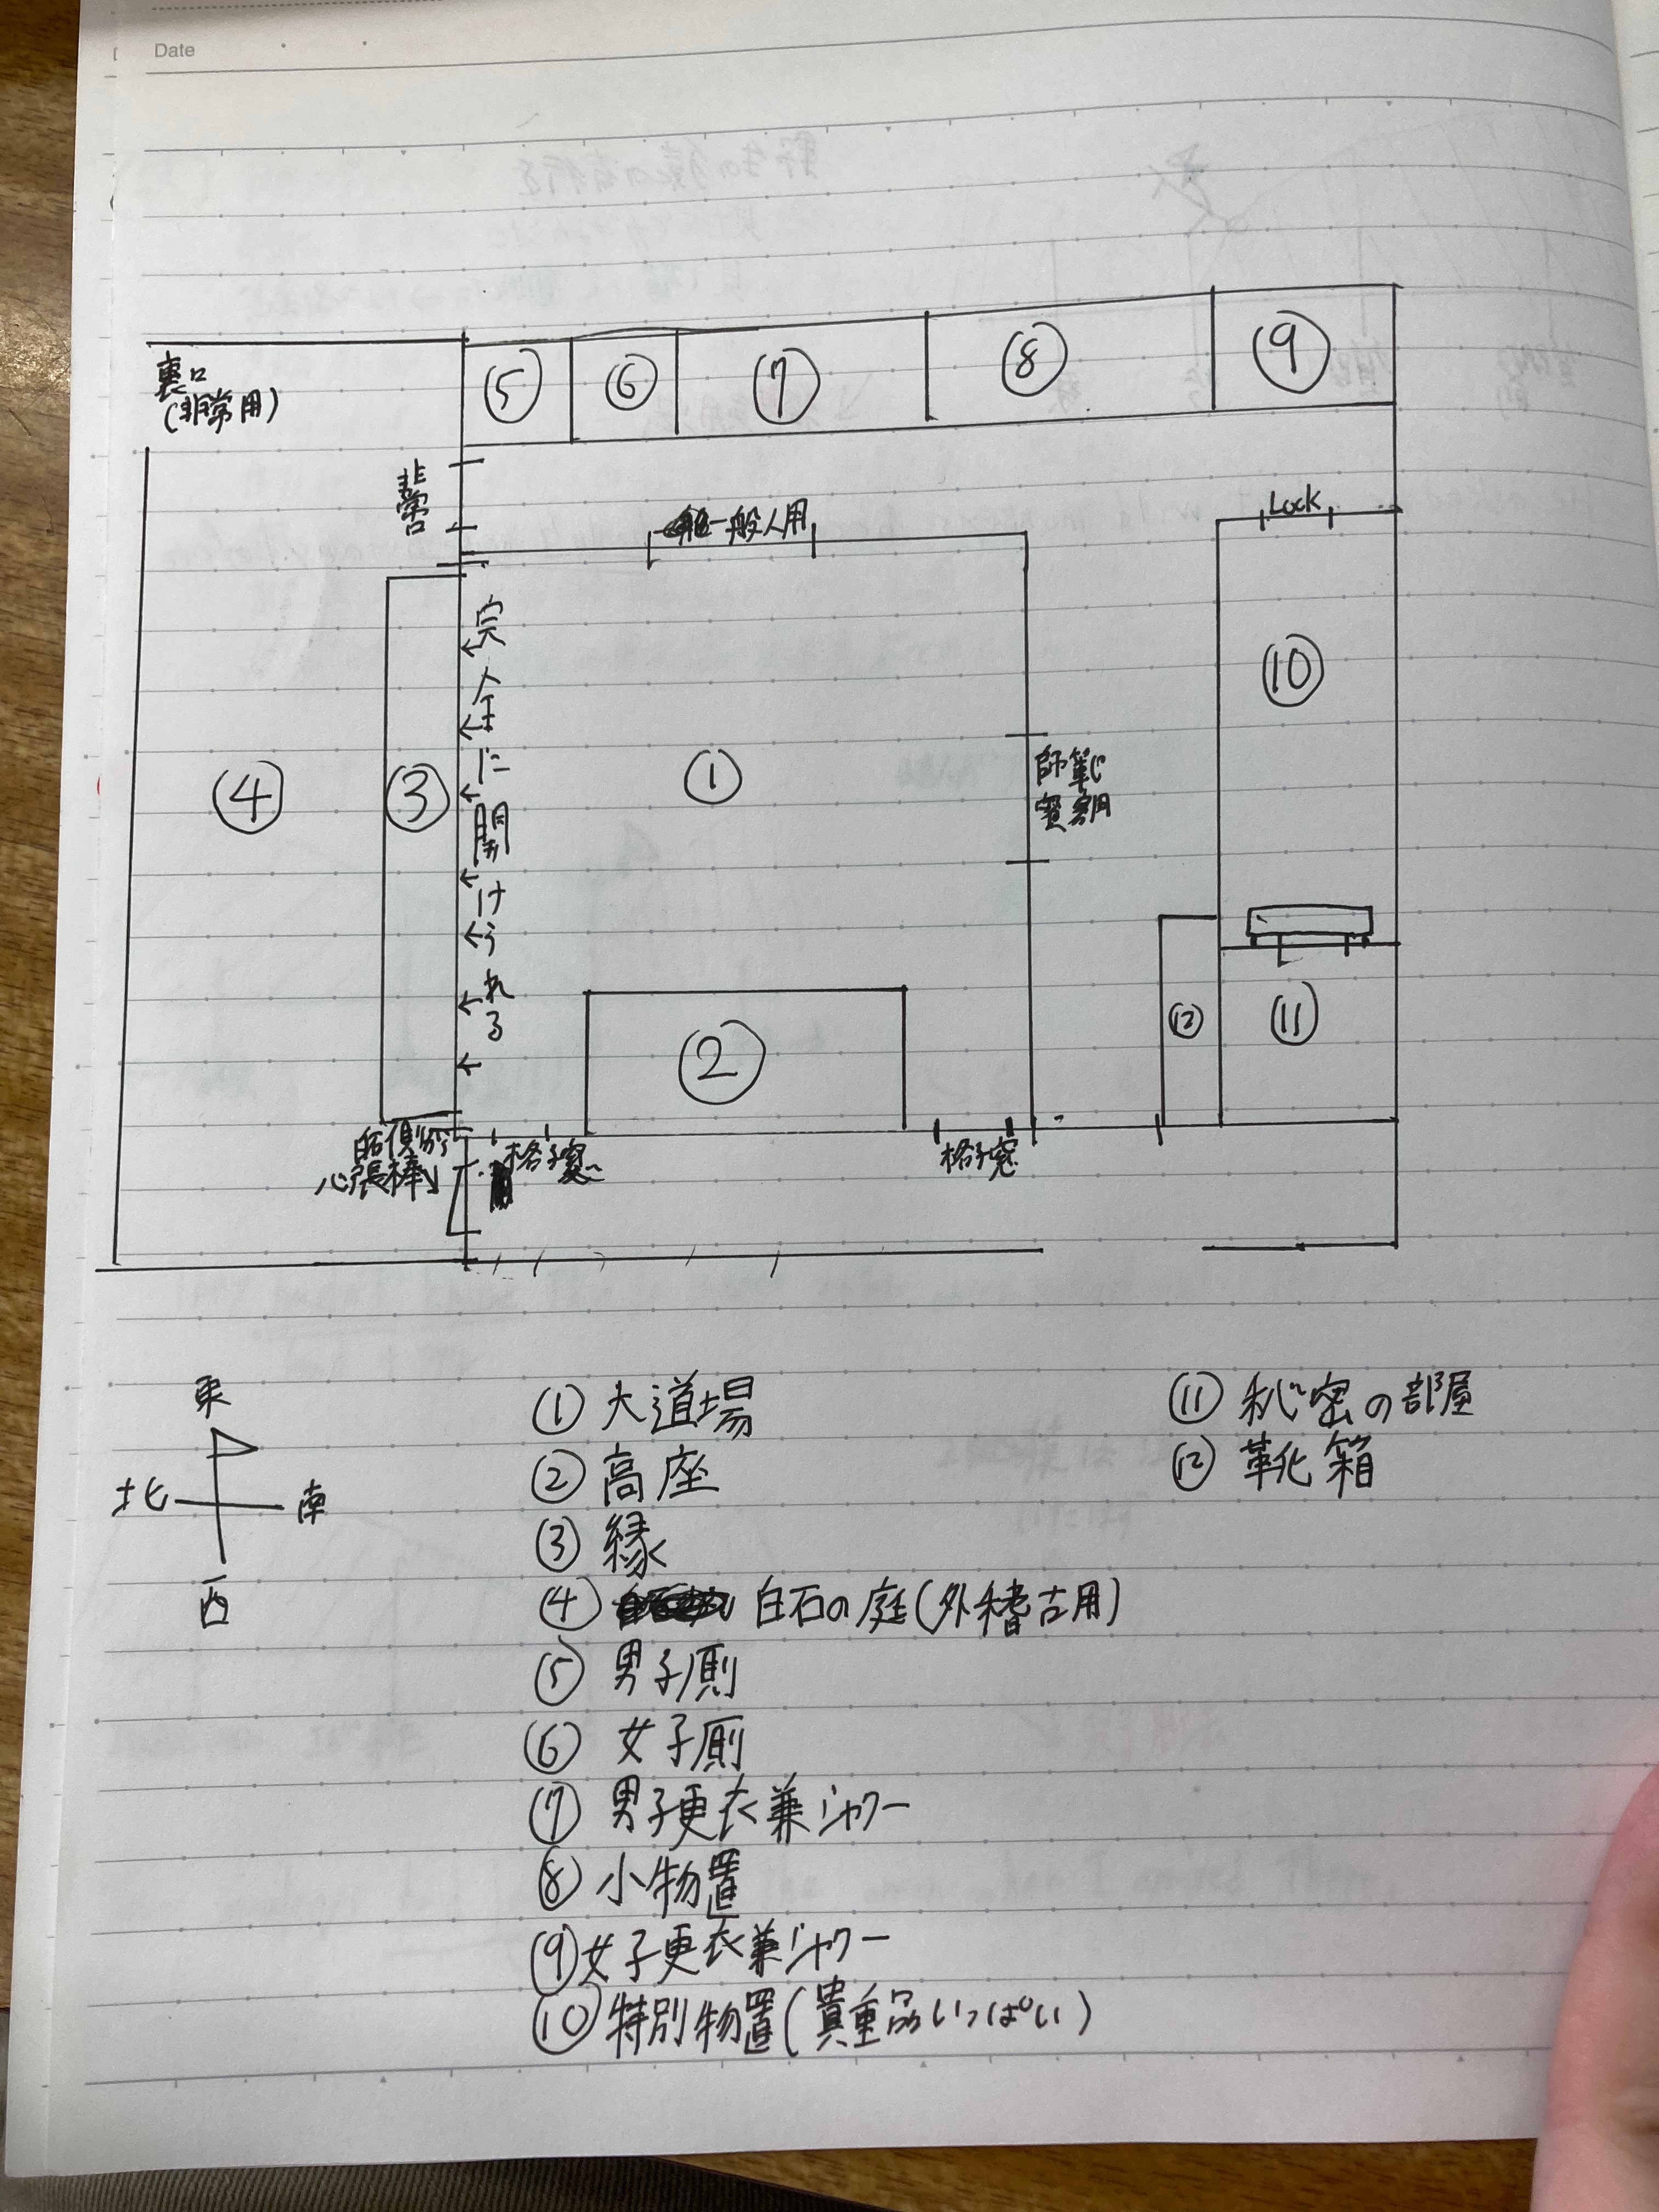 Date
裏口
(非常用)
⑤
⑥
⑦
⑧
⑨
非常口
一般人用
Lock
完全に開けられる
①
師範
賓客用
⑩
④
③
②
⑫
⑪
心張棒
格子窓
格子窓
東
北
南
西
① 大道場
② 高座
③ 縁
④ 白石の庭(外稽古用)
⑤ 男子厠
⑥ 女子厠
⑦ 男子更衣兼シャワー
⑧ 小物置
⑨ 女子更衣兼シャワー
⑩ 特別物置(貴重品いっぱい)
⑪ 秘密の部屋
⑫ 靴箱